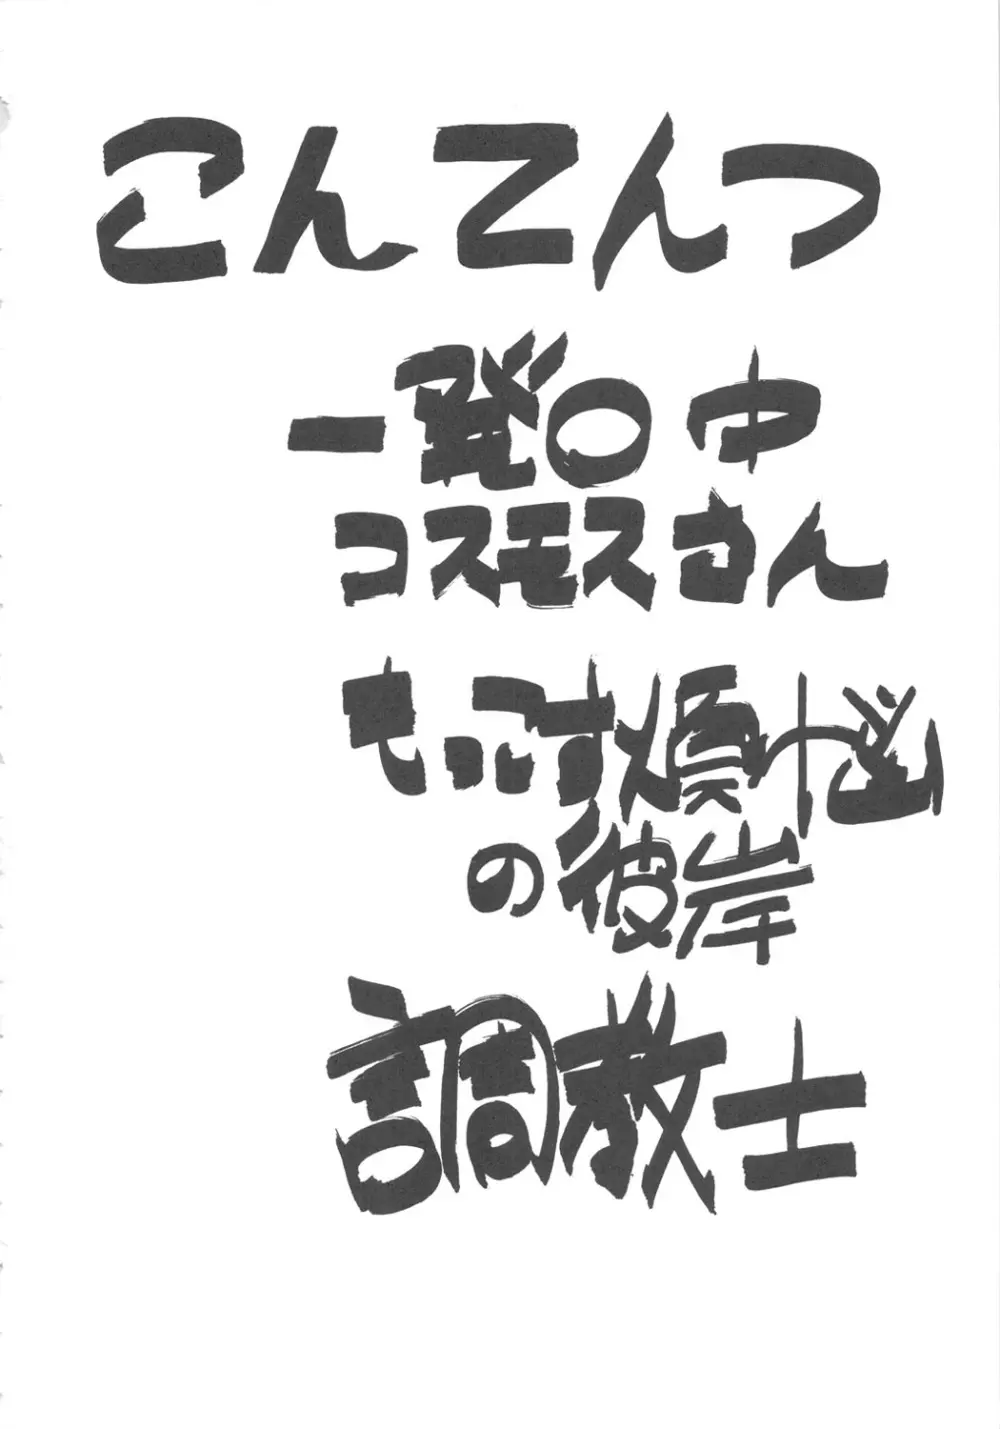 こんてんつ
一発〇中
コスモスさん
もっこす煩悩
の彼岸
調教士